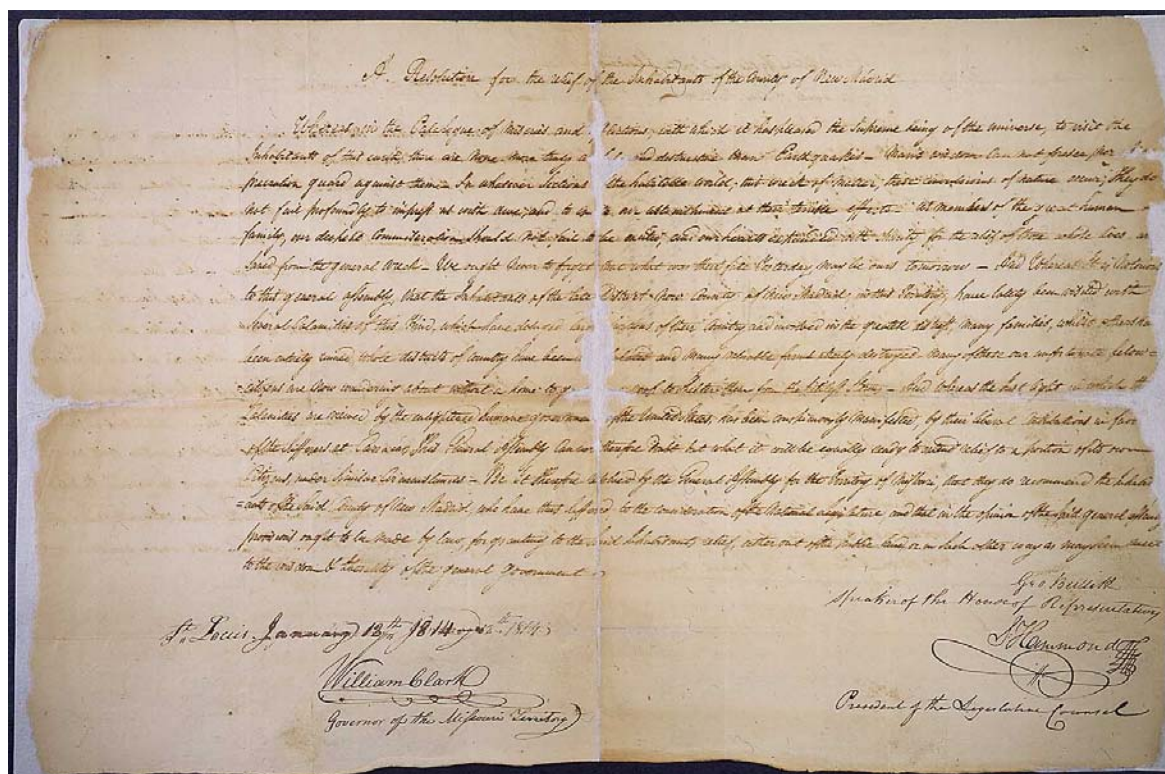 A Resolution for the relief of the Inhabitants of the County of New Madrid
Whereas in the Catalogue of miseries and with which it has pleased the Supreme being of the universe, to visit the
Inhabitants of this earth, there are None more truly and destructive than Earthquakes – Man's wisdom Can not foresee, nor
precaution guard against them – In whatever Sections the habitable world, this wreck of matter, these convulsions of nature occur, they do
not fail profoundly to impress us with awe, and to our astonishment at their terrible effects – As members of the great human
family, our deepest Commiseration Should not fail to be excited, and our hearts with charity for the relief of those whose lives are
saved from the general wreck – We ought Never to forget that what was their fate Yesterday, may be ours tomorrow – And Whereas It is Notorious
to this general assembly, that the Inhabitants of the late District now County of New Madrid, in this Territory, have lately been visited with
Several Calamities of this kind, which have deluged large portions of their Country and involved in the greatest distress, many families, whilst others have
been entirely ruined, whole districts of Country have been and many valuable farms destroyed – many of these our unfortunate fellow =
=citizens are Now wandering about without a home to go roof to shelter them from the – And whereas the just light in which the
Calamities are viewed by the enlightened humane government of the United States, has been Manifested, by their liberal in favor
of the Sufferers at This General Assembly Cannot therefore Doubt but what it will be equally ready to extend relief to a portion of its own
Citizens, under Similar Circumstances – Be It therefore resolved by the General Assembly for the Territory of Missouri, that they do recommend the Inhabit
=ants of the Said County of New Madrid, who have thus suffered to the consideration of the National Legislature, and that in the opinion of the said general assembly
provisions ought to be made by law, for granting to the said Inhabitants relief, either out of the public land or in such other way as may seem meet
to the wisdom & liberality of the general government
Geo Bullitt
Speaker of the House of Representatives
St. Louis, January 1814
S Hammond
William Clark
President of the Legislative Counsel
Governor of the Missouri Territory